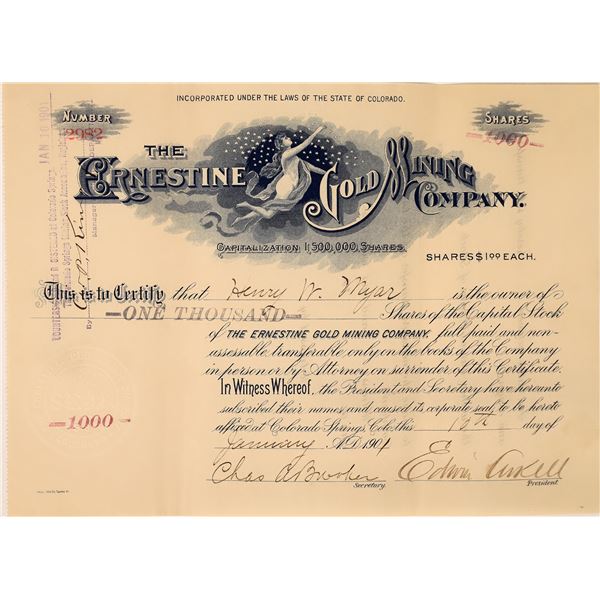 INCORPORATED UNDER THE LAWS OF THE STATE OF COLORADO.
NUMBER
2982
SHARES
1000
JAN 16 1901
THE
ERNESTINE GOLD MINING
COMPANY.
CAPITALIZATION 1,500,000 SHARES.
SHARES $1.00 EACH.
This is to Certify that Henry W. Myar is the owner of
ONE THOUSAND Shares of the Capital Stock
of THE ERNESTINE GOLD MINING COMPANY, full paid and non-
assessable, transferable only on the books of the Company
in person or by Attorney on surrender of this Certificate.
In Witness Whereof, the President and Secretary have hereunto
subscribed their names and caused its corporate seal to be hereto
affixed at Colorado Springs, Colo, this 15th day of
January A.D. 1901
1000
Chas Edwin
Secretary.
President